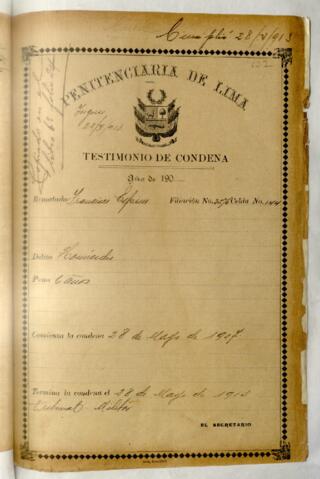 Cumplió 28/V/913
PENITENCIARIA DE LIMA
TESTIMONIO DE CONDENA
Año de 190
Rematado Francisco Filiación No. Celda No. 144
Delito Homicidio
Pena 6 años
Comienza la condena 28 de Mayo de 1907
Termina la condena el 28 de Mayo de 1913
Tribunal Militar
EL SECRETARIO